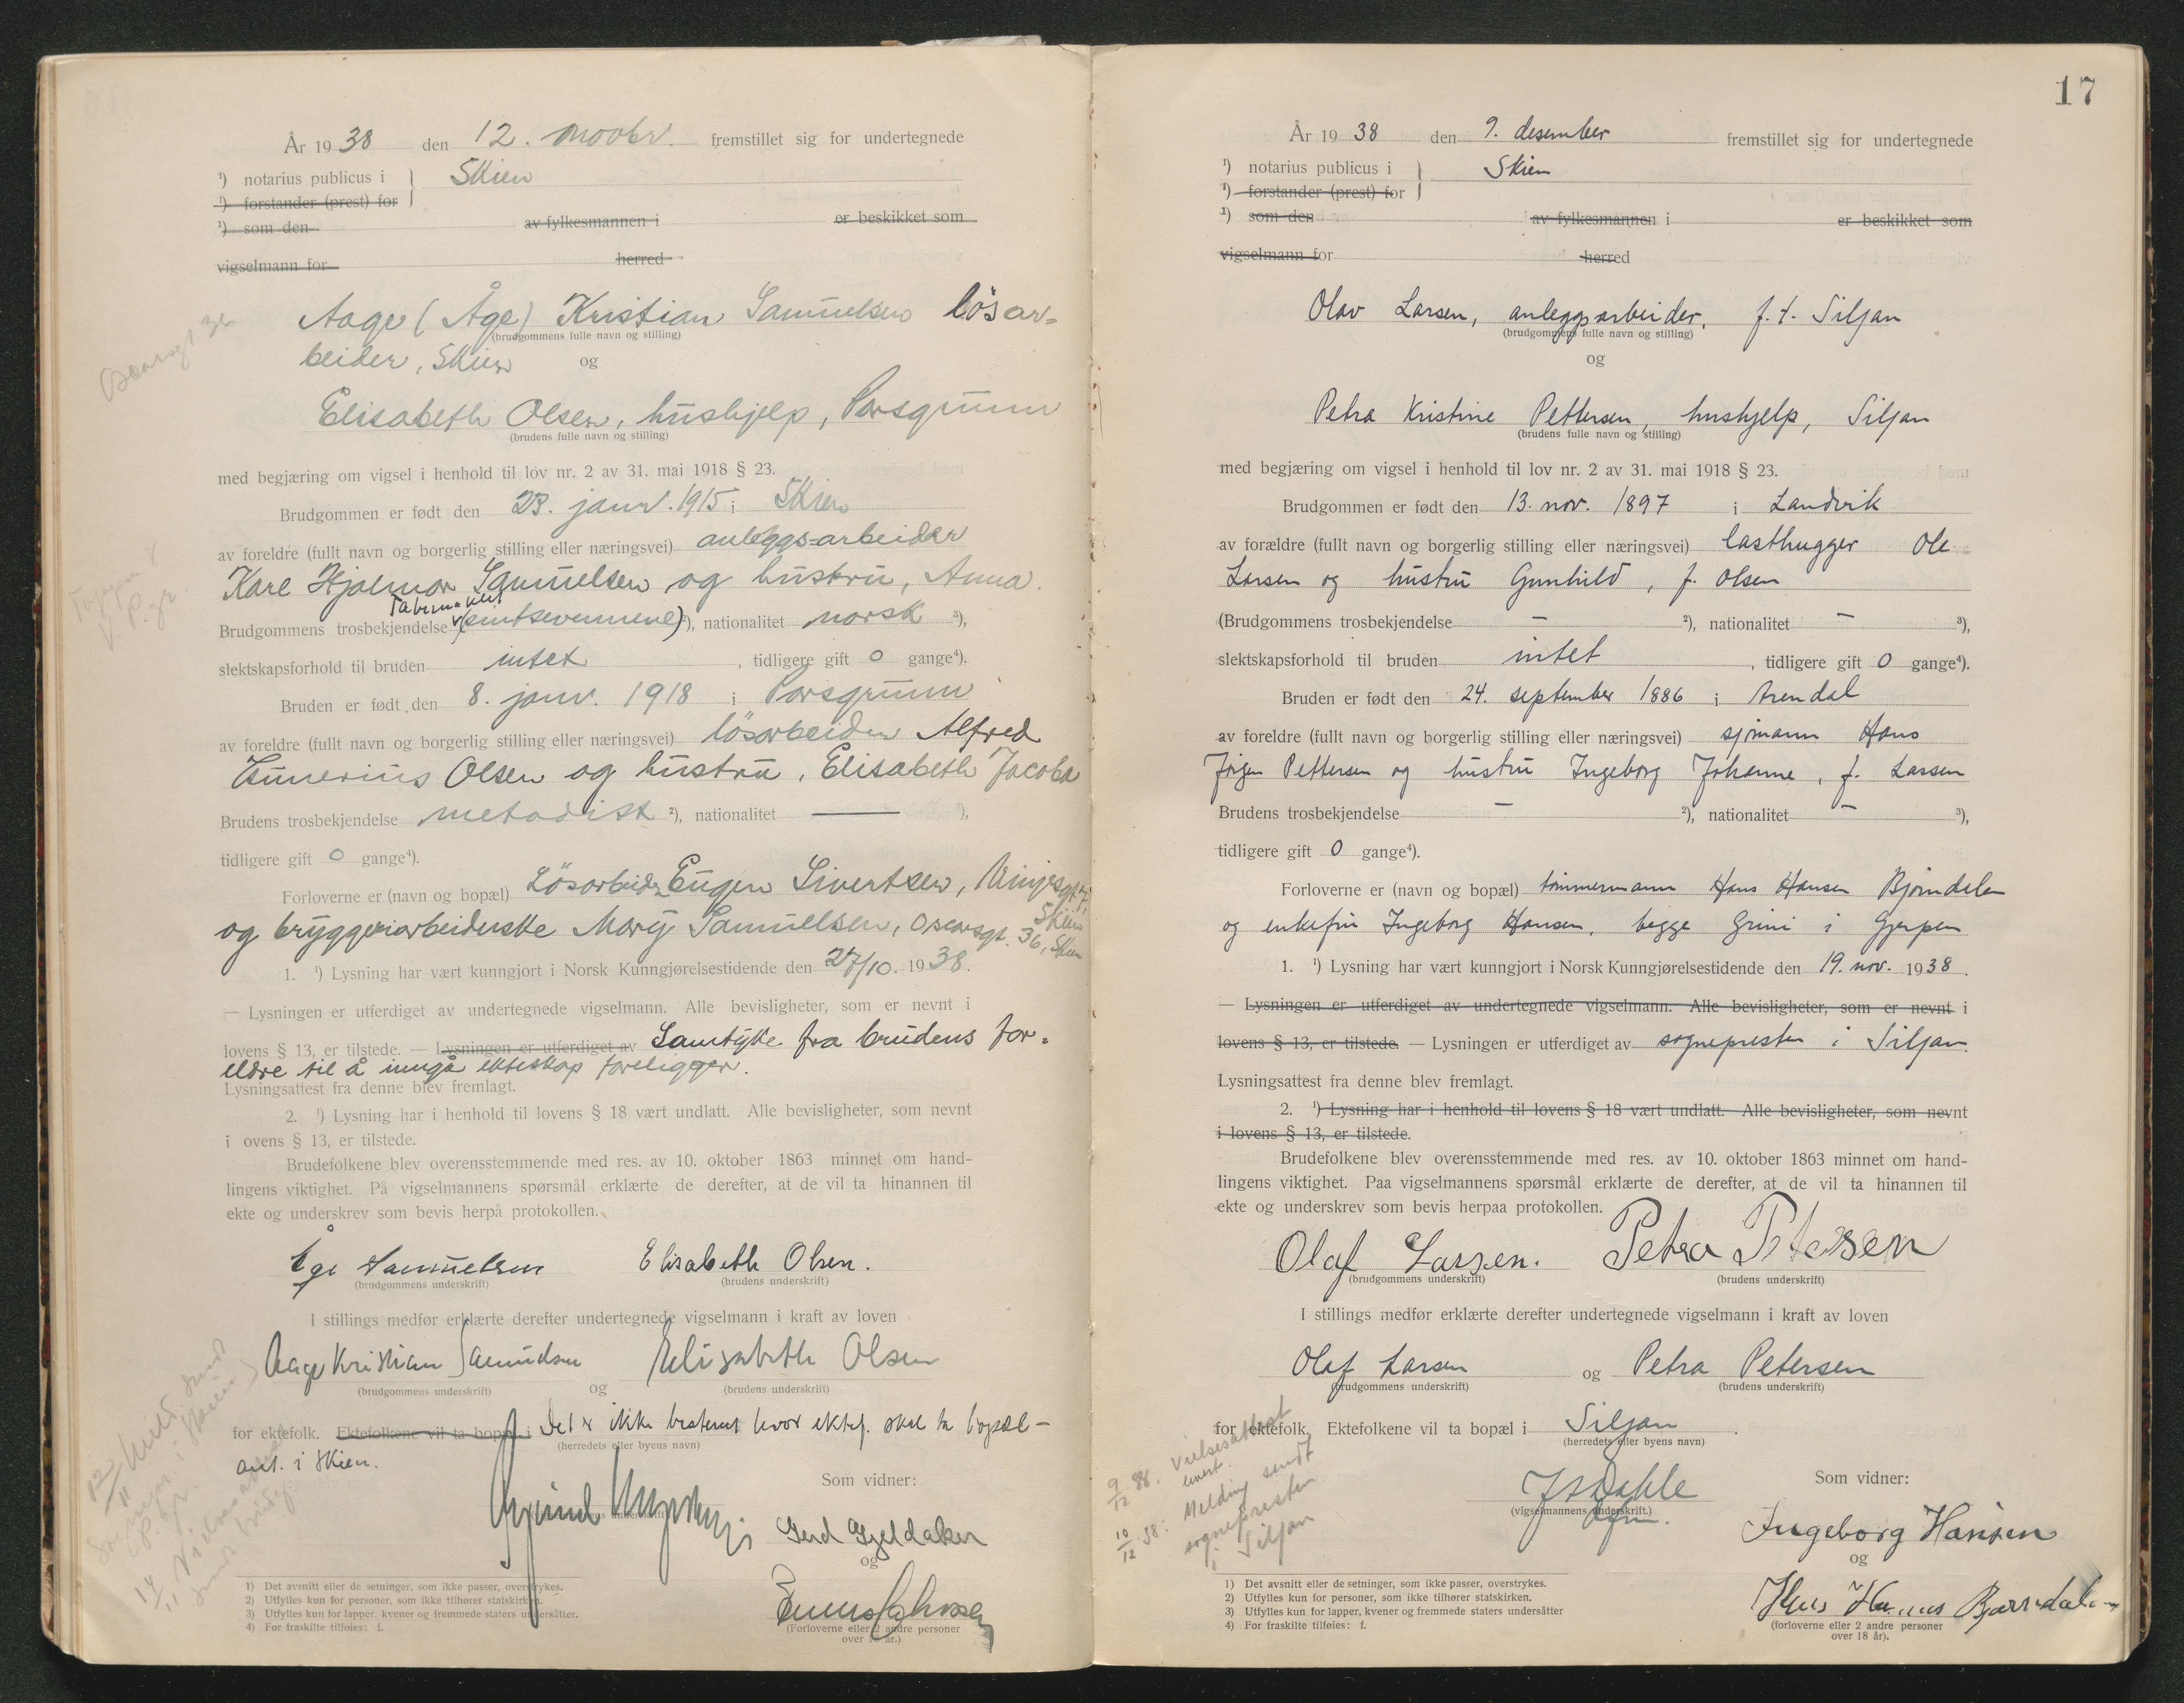 År 1938 den 12. novbr. fremstillet sig for undertegnede
¹) notarius publicus i } Skien
¹) forstander (prest) for
¹) som den av fylkesmannen i er beskikket som
vigselmann for herred
Aage (Åge) Kristian Samuelsen lösar-
(brudgommens fulle navn og stilling)
beider, Skien og
Elisabeth Olsen, hushjelp, Porsgrunn
(brudens fulle navn og stilling)
med begjæring om vigsel i henhold til lov nr. 2 av 31. mai 1918 § 23.
Brudgommen er født den 23. janr. 1915 i Skien
av foreldre (fullt navn og borgerlig stilling eller næringsvei) anleggs-arbeider
Karl Hjalmar Samuelsen og hustru, Anna.
Brudgommens trosbekjendelse ²), nationalitet norsk ³),
slektskapsforhold til bruden intet , tidligere gift 0 gange⁴).
Bruden er født den 8. janv. 1918 i Porsgrunn
av foreldre (fullt navn og borgerlig stilling eller næringsvei) lösarbeider Alfred
Olsen og hustru, Elisabeth Jacoba
Brudens trosbekjendelse metodist ²), nationalitet — ³),
tidligere gift 0 gange⁴).
Forloverne er (navn og bopæl) Lösarbeider Eugen Sivertsen,
Skien
og bryggeriarbeiderske Mary Samuelsen, Oscarsgt. 36, Skien
1. ¹) Lysning har vært kunngjort i Norsk Kunngjørelsestidende den 27/10. 1938.
— Lysningen er utferdiget av undertegnede vigselmann. Alle bevisligheter, som er nevnt i
lovens § 13, er tilstede. — Lysningen er utferdiget av Samtykke fra brudens for-
eldre til å inngå ekteskap foreligger.
Lysningsattest fra denne blev fremlagt.
2. ¹) Lysning har i henhold til lovens § 18 vært undlatt. Alle bevisligheter, som nevnt
i ovens § 13, er tilstede.
Brudefolkene blev overensstemmende med res. av 10. oktober 1863 minnet om hand-
lingens viktighet. På vigselmannens spørsmål erklærte de derefter, at de vil ta hinannen til
ekte og underskrev som bevis herpå protokollen.
Åge Samuelsen Elisabeth Olsen.
(brudgommens underskrift) (brudens underskrift)
I stillings medfør erklærte derefter undertegnede vigselmann i kraft av loven
Aage Kristian Samuelsen Elisabeth Olsen
(brudgommens underskrift) og (brudens underskrift)
for ektefolk. Ektefolkene vil ta bopæl i Det er ikke bestemt hvor ektef. skal ta bopæl -
(herredets eller byens navn)
ant. i Skien.
Som vidner:
Gerd Gjeldaker
og
(Forloverne eller 2 andre personer
over 18 år.)
1) Det avsnitt eller de setninger, som ikke passer, overstrykes.
2) Utfylles kun for personer, som ikke tilhører statskirken.
3) Utfylles kun for lapper, kvener og fremmede staters undersåtter.
4) For fraskilte tilføies: f.
17
År 1938 den 9. desember fremstillet sig for undertegnede
¹) notarius publicus i } Skien
¹) forstander (prest) for
¹) som den av fylkesmannen i er beskikket som
vigselmann for herred
Olav Larsen, anleggsarbeider, f. t. Siljan
(brudgommens fulle navn og stilling)
og
Petra Kristine Pettersen, hushjelp, Siljan
(brudens fulle navn og stilling)
med begjæring om vigsel i henhold til lov nr. 2 av 31. mai 1918 § 23.
Brudgommen er født den 13. nov. 1897 i Landvik
av forældre (fullt navn og borgerlig stilling eller næringsvei) lasthugger Ole
Larsen og hustru Gunhild, f. Olsen
(Brudgommens trosbekjendelse — ²), nationalitet — ³),
slektskapsforhold til bruden intet , tidligere gift 0 gange⁴).
Bruden er født den 24. september 1886 i Arendal
av foreldre (fullt navn og borgerlig stilling eller næringsvei) sjømann Hans
Jørgen Pettersen og hustru Ingeborg Johanne, f. Larsen
Brudens trosbekjendelse — ²), nationalitet — ³),
tidligere gift 0 gange⁴).
Forloverne er (navn og bopæl) tømmermann Hans Hansen Bjørndalen
og enkefru Ingeborg Hansen, begge Grini i Gjerpen
1. ¹) Lysning har vært kunngjort i Norsk Kunngjørelsestidende den 19. nov. 1938.
— Lysningen er utferdiget av undertegnede vigselmann. Alle bevisligheter, som er nevnt i
lovens § 13, er tilstede. — Lysningen er utferdiget av sognepresten i Siljan.
Lysningsattest fra denne blev fremlagt.
2. ¹) Lysning har i henhold til lovens § 18 vært undlatt. Alle bevisligheter, som nevnt
i lovens § 13, er tilstede.
Brudefolkene blev overensstemmende med res. av 10. oktober 1863 minnet om hand-
lingens viktighet. Paa vigselmannens spørsmål erklærte de derefter, at de vil ta hinannen til
ekte og underskrev som bevis herpaa protokollen.
Olaf Larsen. Petra Petersen
(brudgommens underskrift) (brudens underskrift)
I stillings medfør erklærte derefter undertegnede vigselmann i kraft av loven
Olaf Larsen og Petra Petersen
(brudgommens underskrift) (brudens underskrift)
for ektefolk. Ektefolkene vil ta bopæl i Siljan.
(herredets eller byens navn)
9/12 38. Vielsesattest
levert.
10/12 38: Melding sendt
sognepresten
i Siljan
Som vidner:
(vigselmannens underskrift.)
Ingeborg Hansen
og
(forloverne eller 2 andre personer
over 18 år).
1) Det avsnitt eller de setninger, som ikke passer, overstrykes.
2) Utfylles kun for personer, som ikke tilhører statskirken.
3) Utfylles kun for lapper, kvener og fremmede staters undersåtter
4) For fraskilte tilføies: f.